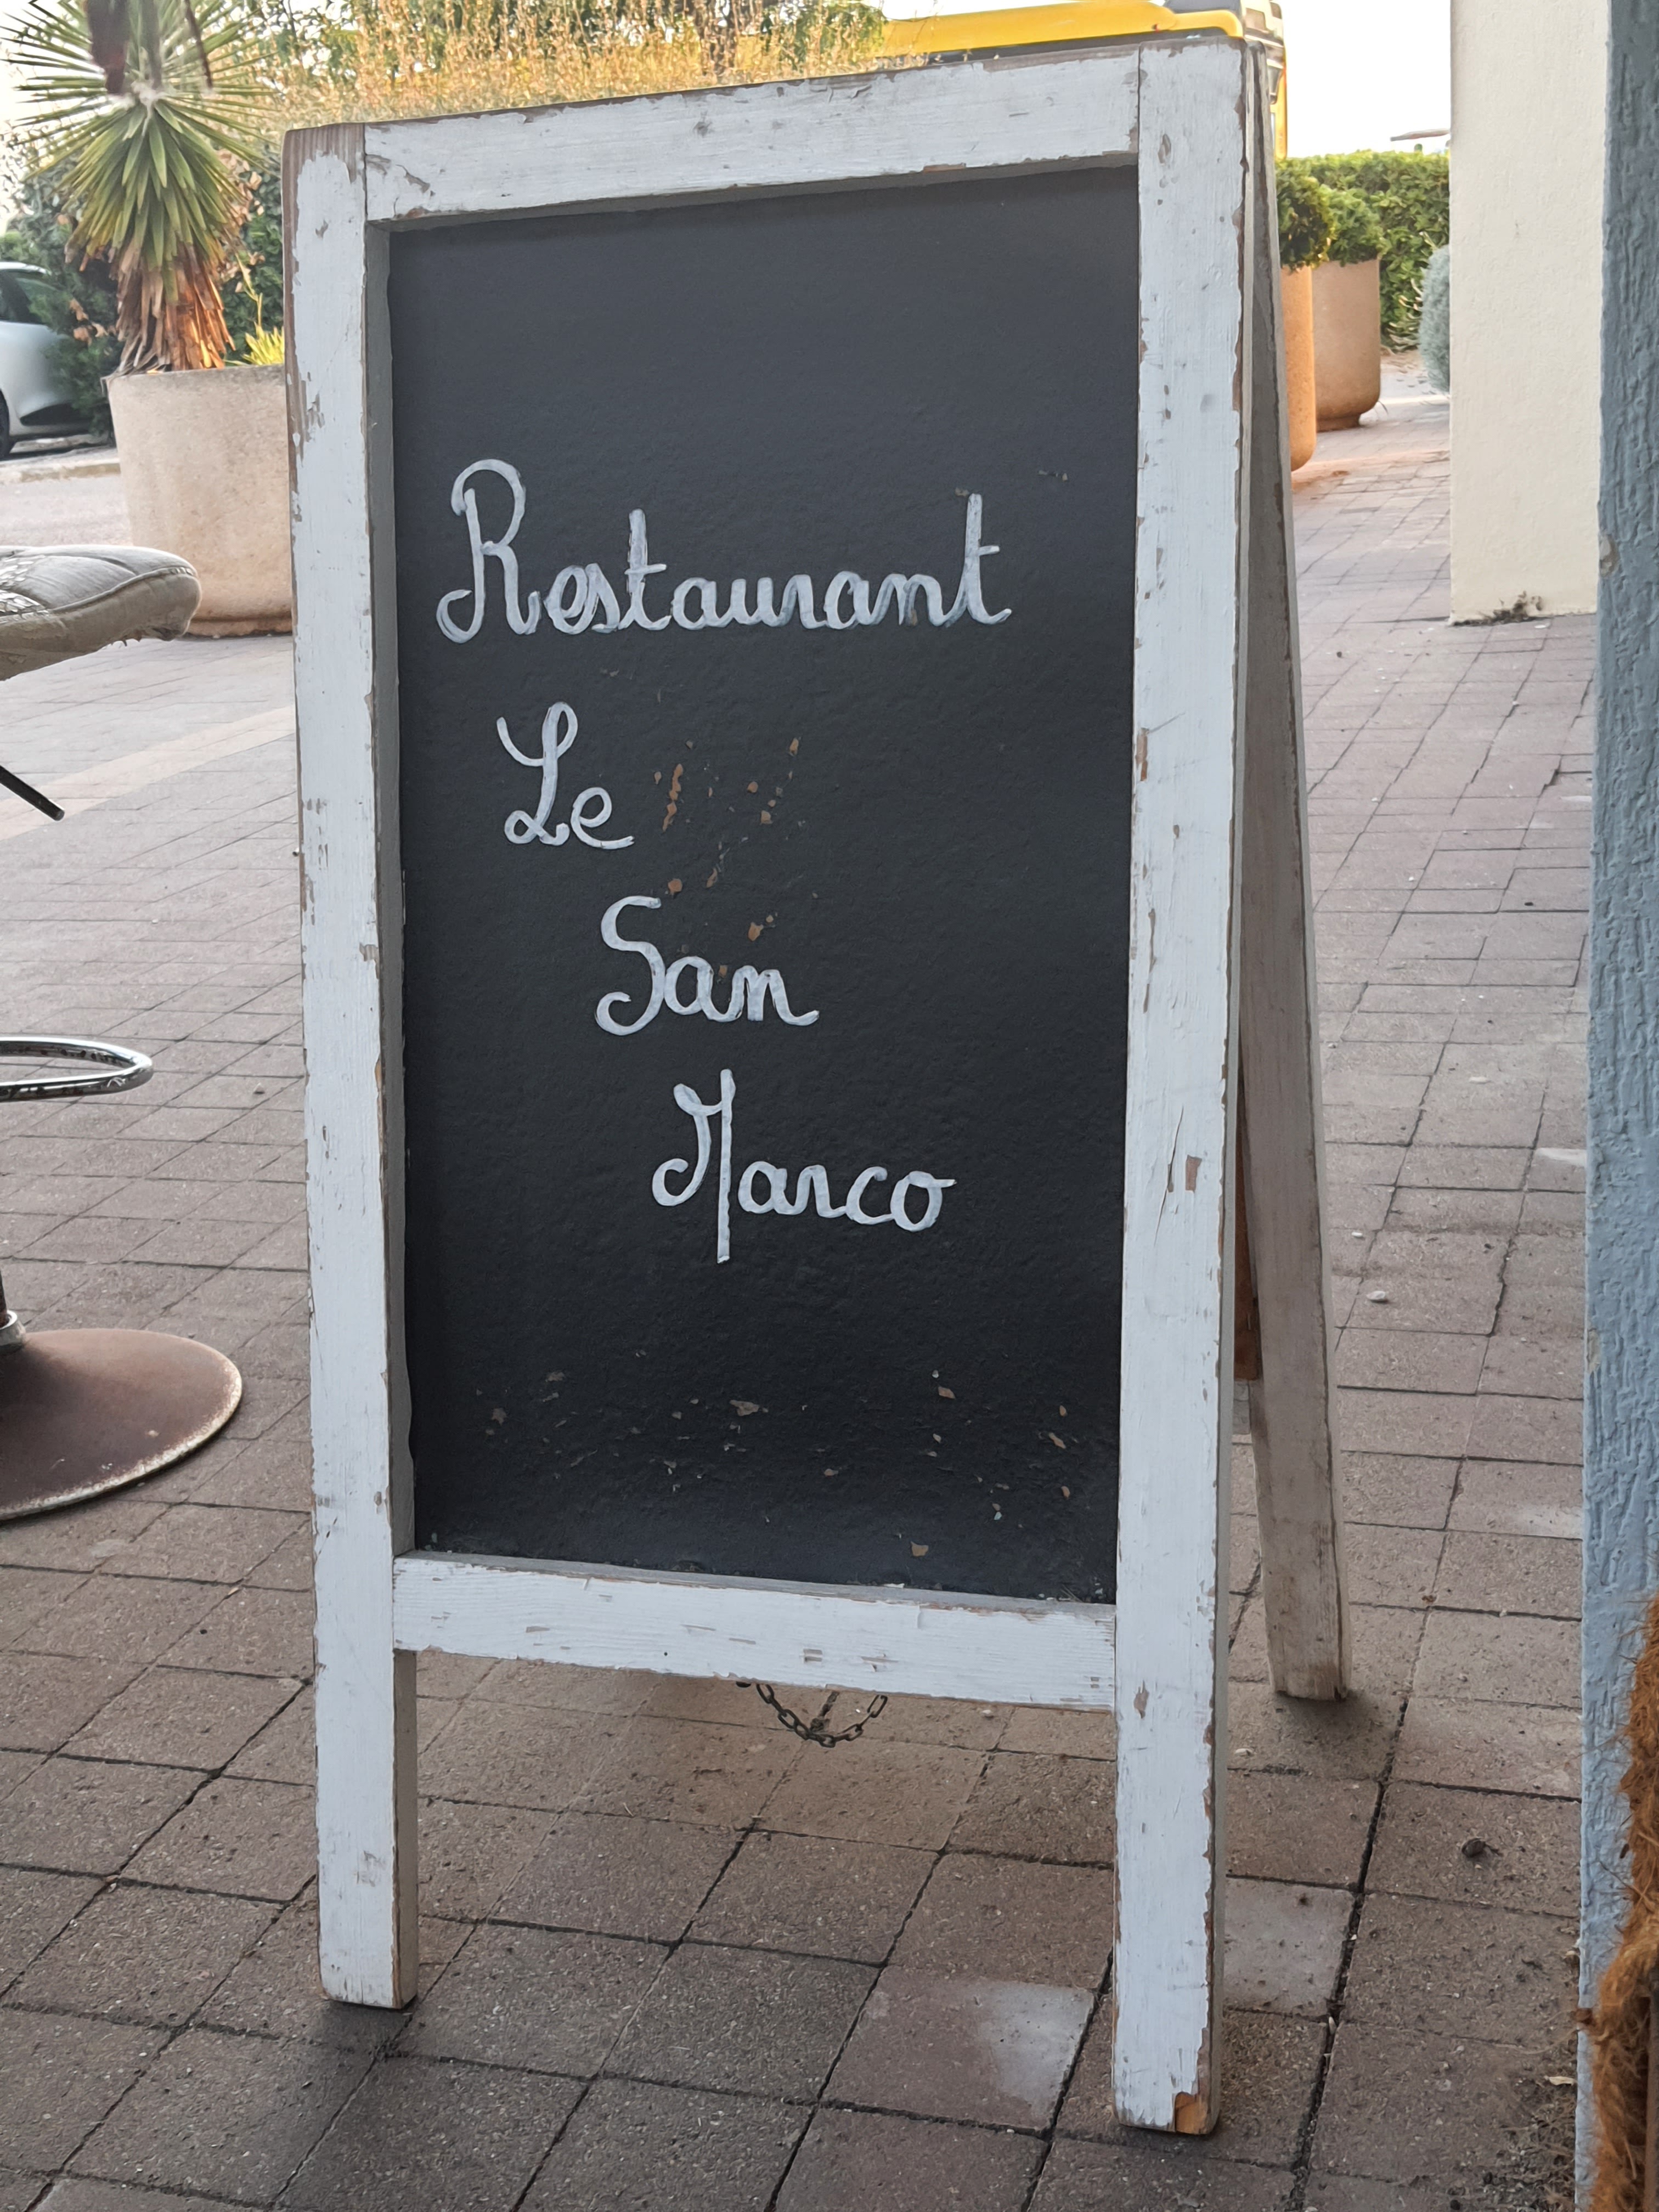 Restaurant
Le
San
Marco